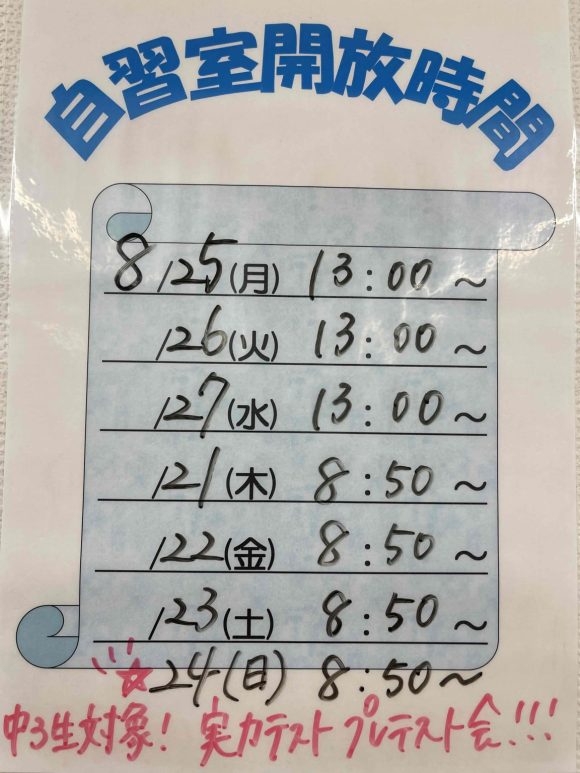 自習室開放時間
8/25(月) 13:00~
/26(火) 13:00~
/27(水) 13:00~
/21(木) 8:50~
/22(金) 8:50~
/23(土) 8:50~
☆24(日) 8:50~
中3生対象! 実力テスト プレテスト会!!!